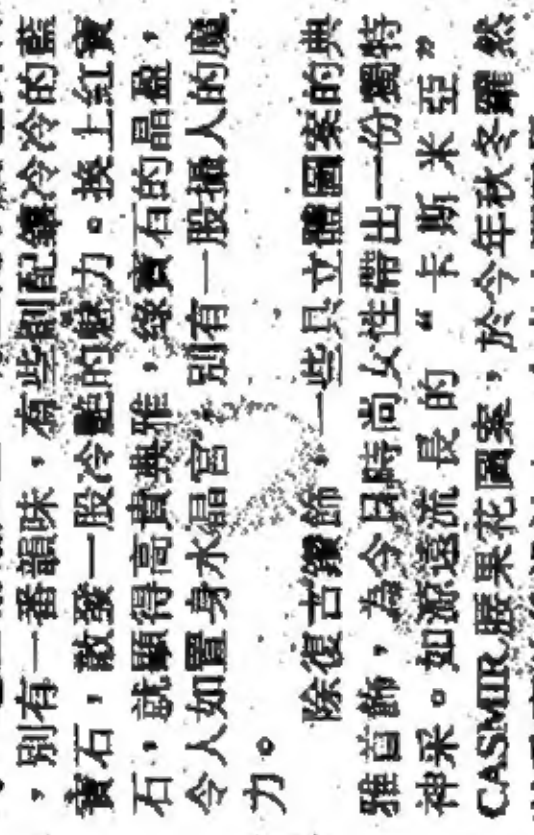 ，別有一番韻味，有些則配鑲冷冷的藍
寶石，散發一股冷艷的魅力。換上紅寶
石，就顯得高貴典雅，綠寶石的晶盈，
令人如置身水晶宮，別有一股攝人的魔
力。
除復古鑲飾，一些具立體圖案的典
雅首飾，為今日時尚女性帶出一份獨特
神采。如源遠流長的“卡斯米亞”
CASMIR腰果花圖案，於今年秋冬羅然